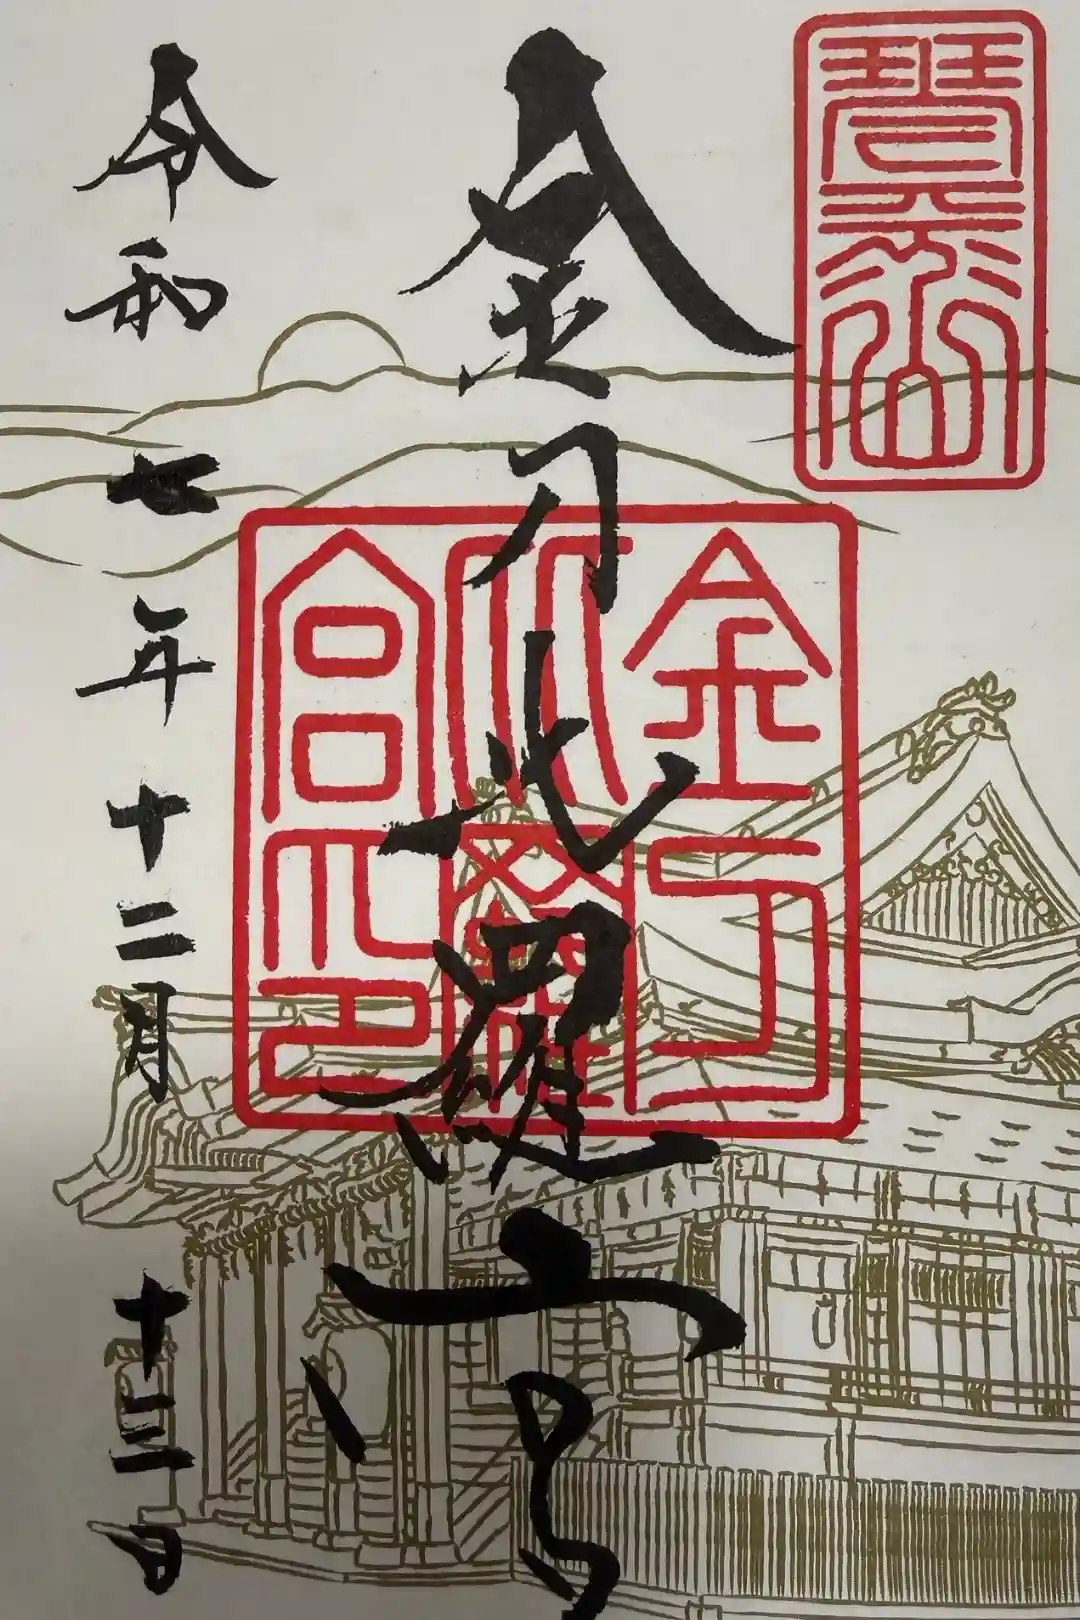 琴平山
金刀比羅宮
金刀比羅宮印
令和七年十二月十三日